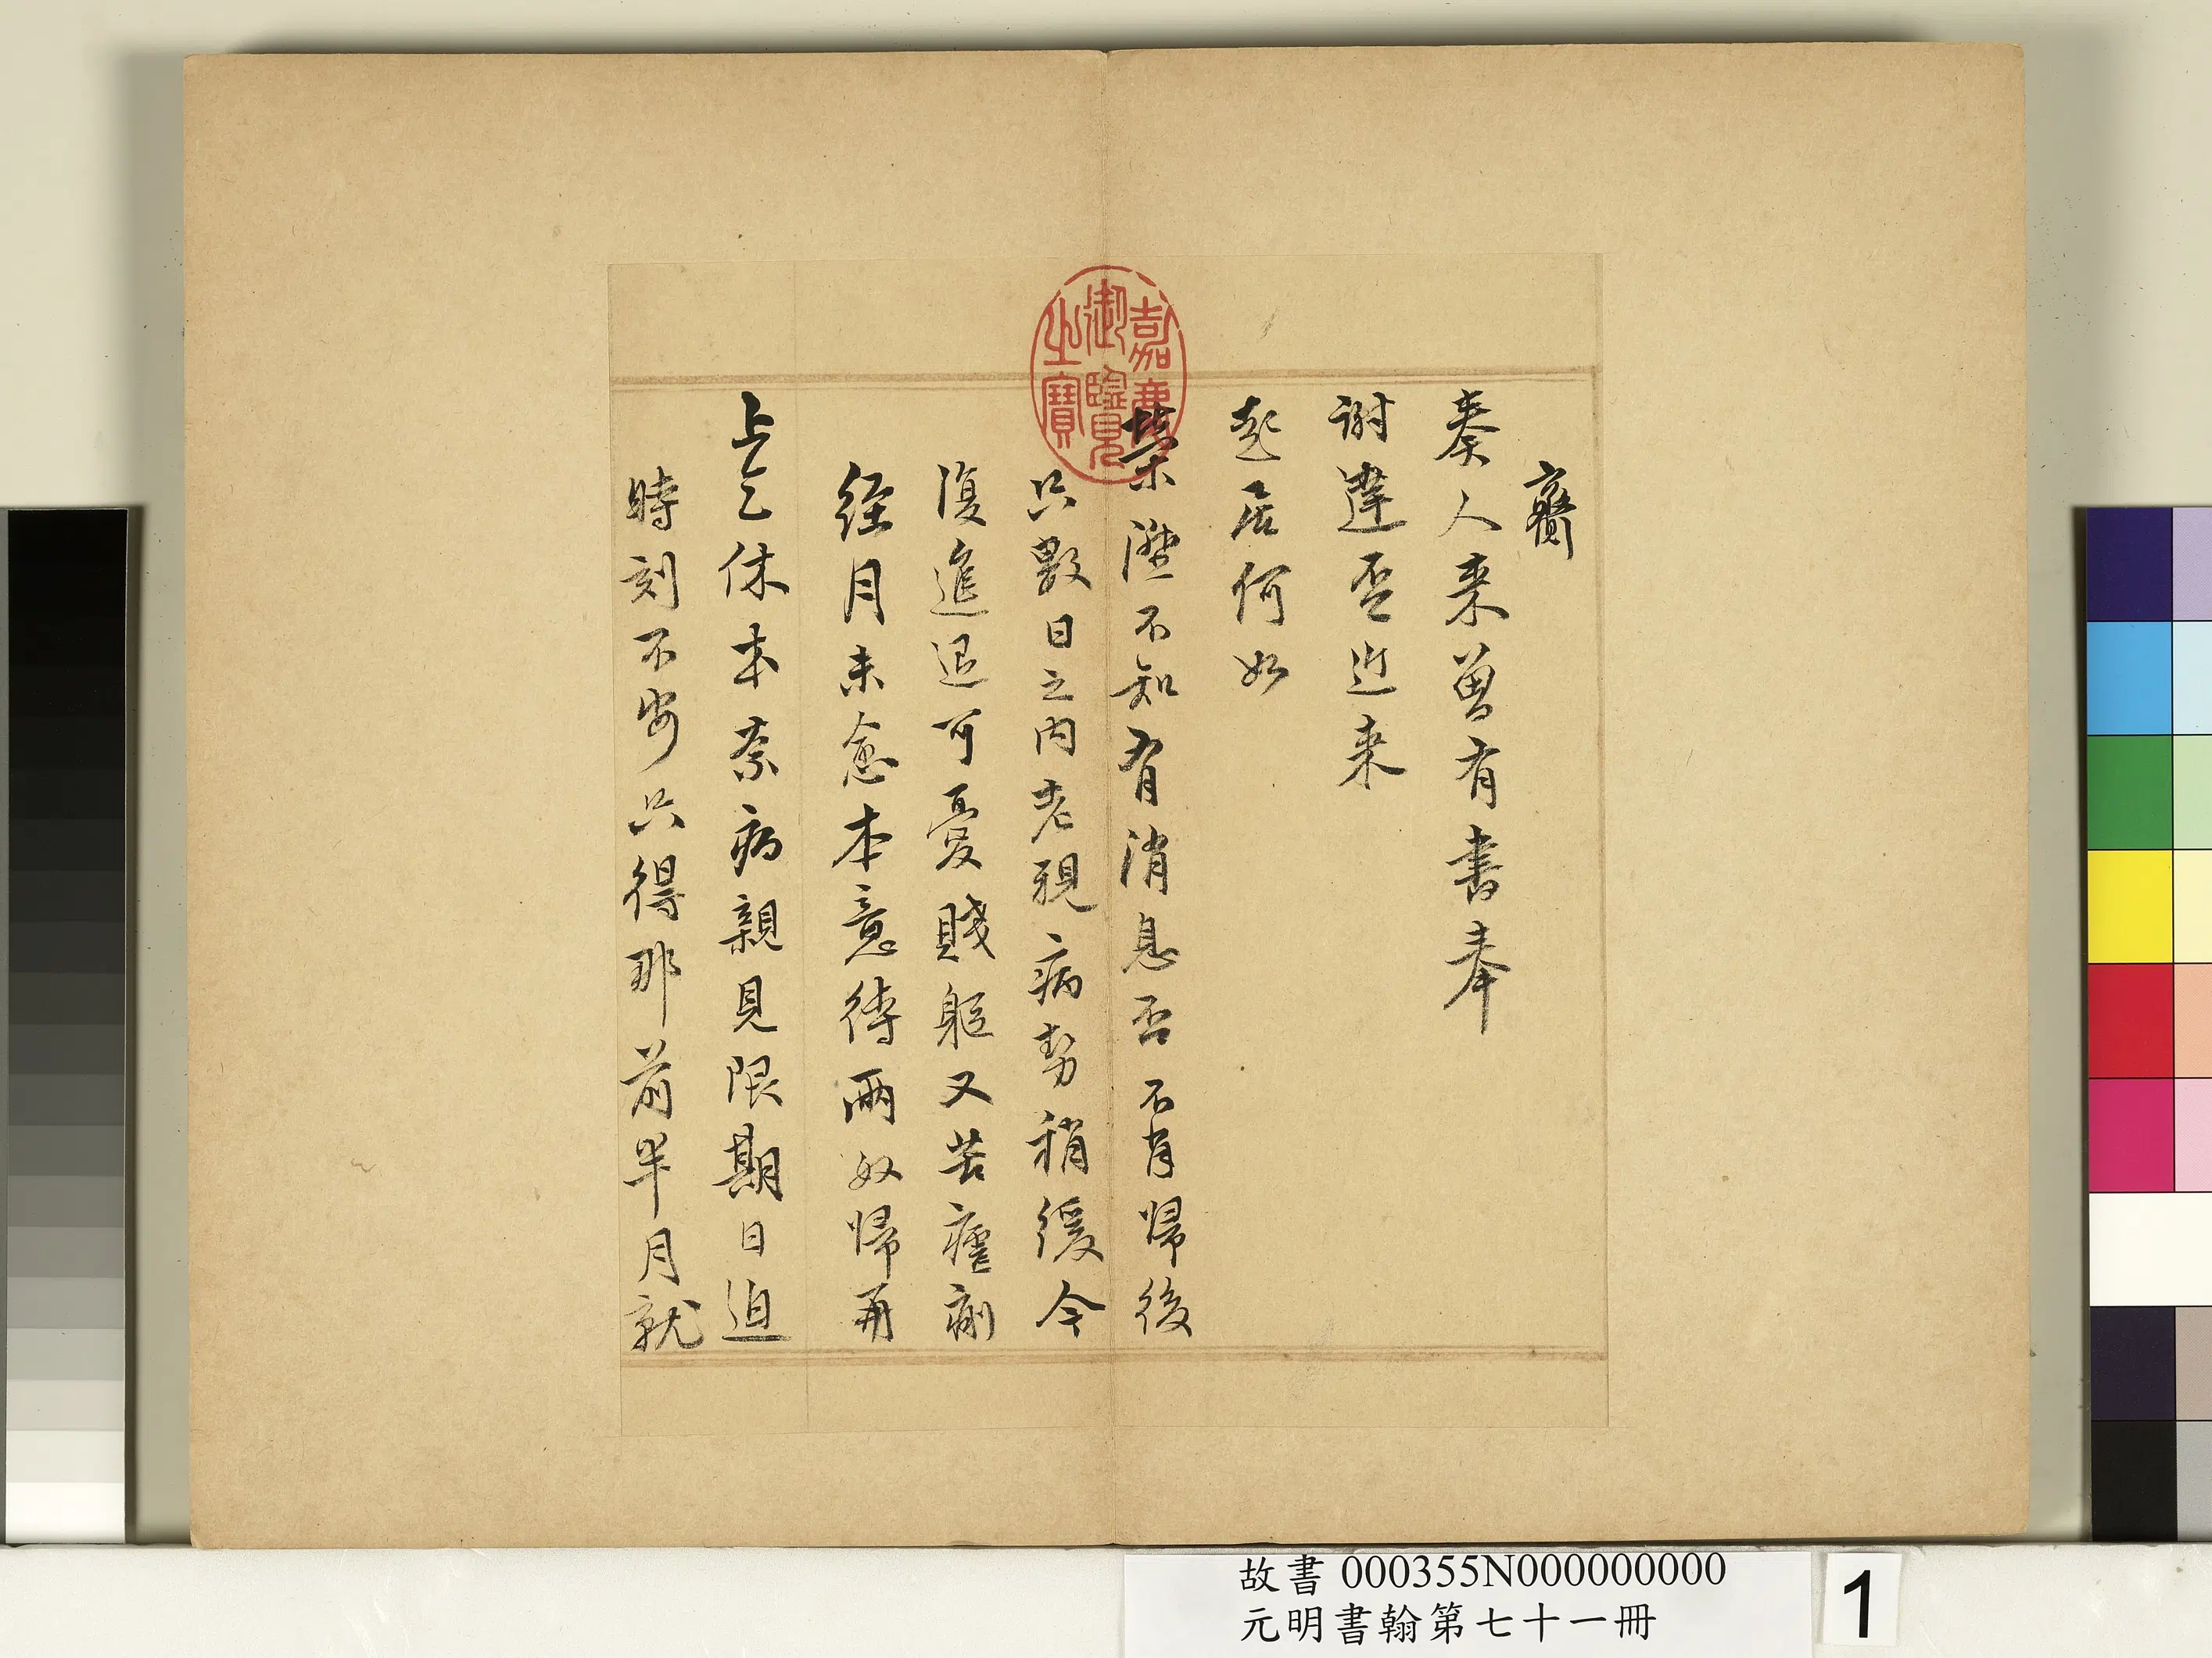 齎
奏人来曾有書奉
謝達否近来
起居何如
榮陞不知有消息否不肖歸後
只數日之内老親病勢稍緩今
復進退可憂賤軀又苦瘧痢
經月未愈本意待兩奴歸再
上乞休本奈病親見限期日迫
時刻不安只得那前半月就
嘉慶御覽之寶
故書 000355N000000000
元明書翰第七十一冊
1